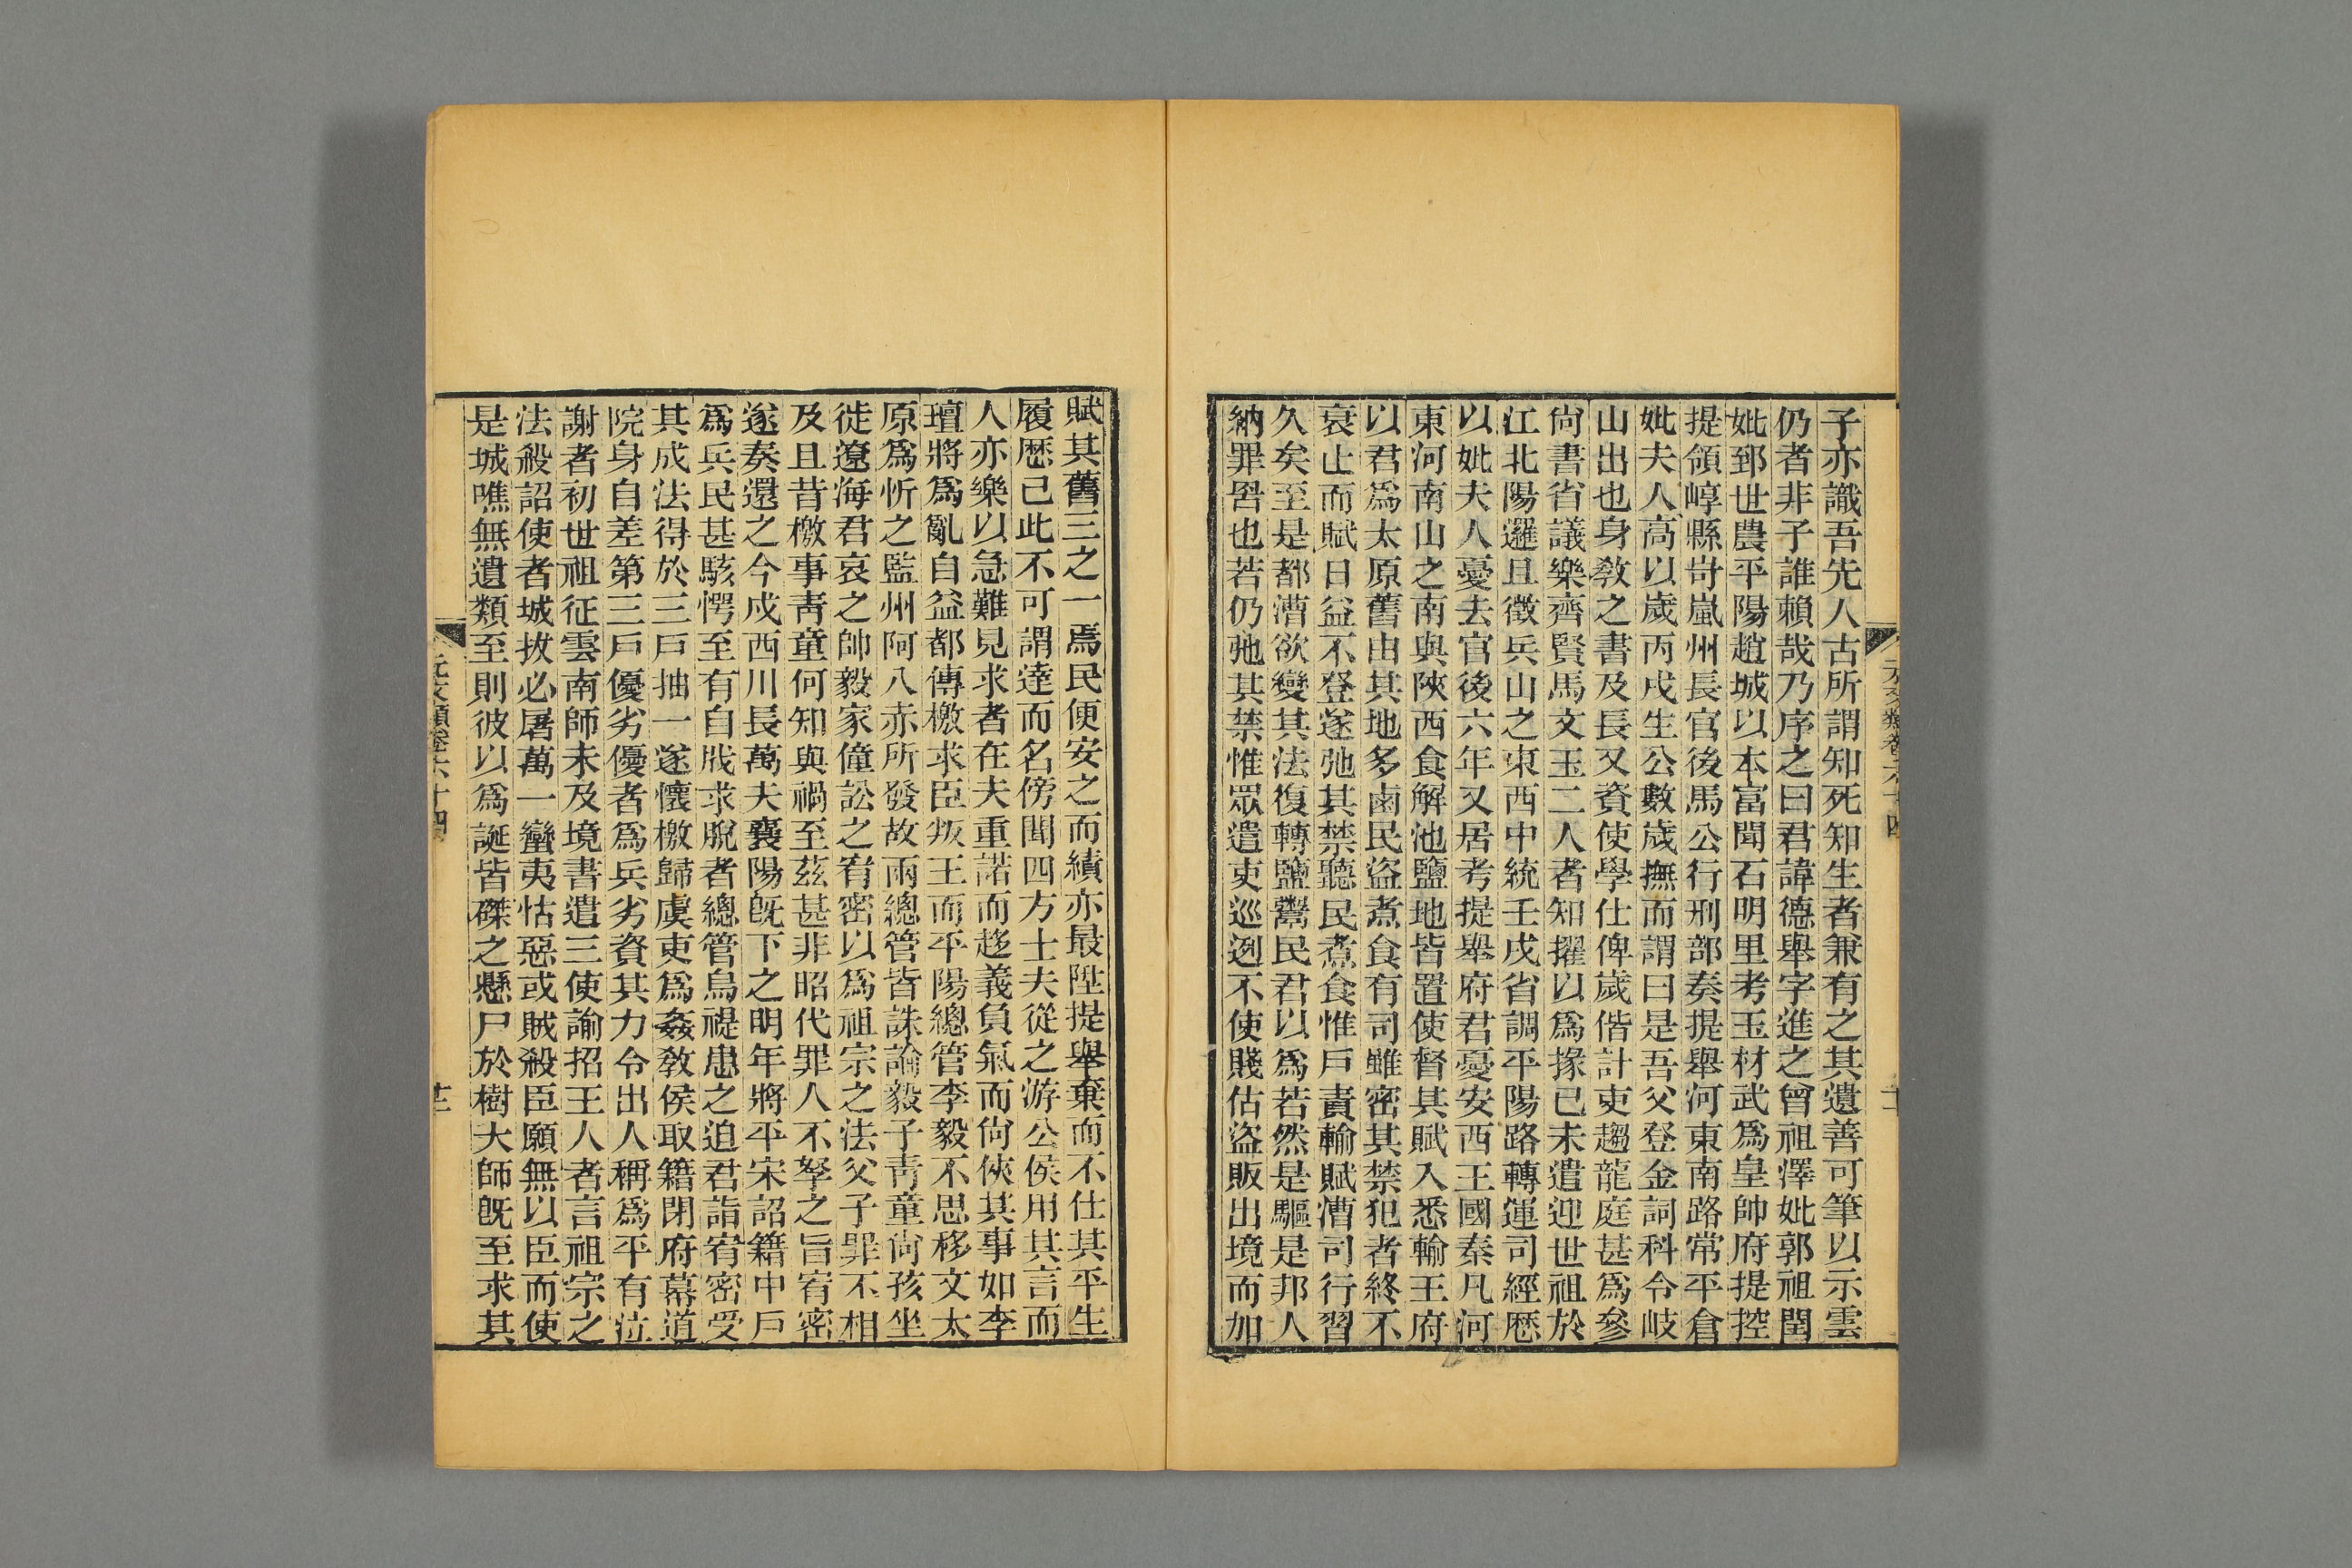 子亦識吾先人古所謂知死知生者兼有之其遺善可筆以示雲
仍者非子誰賴哉乃序之曰君諱德舉字進之曾祖澤妣郭祖閏
妣郅世農平陽趙城以本富聞石明里考玉材武為皇帥府提控
提領崞縣岢嵐州長官後馬公行刑部奏提舉河東南路常平倉
妣夫人高以歲丙戌生公數歲撫而謂曰是吾父登金詞科令岐
山出也身敎之書及長又資使學仕俾歲偕計吏趨龍庭甚為參
尙書省議樂齊賢馬文玉二人者知擢以為掾己未遣迎世祖於
江北陽邏且徵兵山之東西中統壬戌省調平陽路轉運司經歷
以妣夫人憂去官後六年又居考提舉府君憂安西王國秦凡河
東河南山之南與陝西食解池鹽地皆置使督其賦入悉輸王府
以君為太原舊由其地多鹵民盜煮食有司雖密其禁犯者終不
衰止而賦日益不登遂弛其禁聽民煮食惟戶責輸賦漕司行習
久矣至是都漕欲變其法復轉鹽鬻民君以為若然是驅是邦人
納罪罟也若仍弛其禁惟眾遣吏巡迾不使賤估盜販出境而加
元文類卷六十四
賦其舊三之一焉民便安之而績亦最陞提舉棄而不仕其平生
履歷己此不可謂達而名傍聞四方士夫從之游公侯用其言而
人亦樂以急難見求者在夫重諾而趍義負氣而尙俠其事如李
璮將為亂自益都傳檄求臣叛王而平陽總管李毅不思移文太
原為忻之監州阿八赤所發故兩總管皆誅論毅子靑童尙孩坐
徙遼海君哀之帥毅家僮訟之宥密以為祖宗之法父子罪不相
及且昔檄事靑童何知與禍至茲甚非昭代罪人不孥之旨宥密
遂奏還之今戍西川長萬夫襄陽旣下之明年將平宋詔籍中戶
為兵民甚駭愕至有自戕求脫者總管烏禔患之迫君詣宥密受
其成法得於三戶抽一遂懷檄歸虞吏為姦敎侯取籍閉府幕道
院身自差第三戶優劣優者為兵劣資其力令出人稱為平有泣
謝者初世祖征雲南師未及境書遣三使諭招王人者言祖宗之
法殺詔使者城拔必屠萬一蠻夷怙惡或賊殺臣願無以臣而使
是城噍無遺類至則彼以為誕皆磔之懸尸於樹大師旣至求其
元文類卷六十四